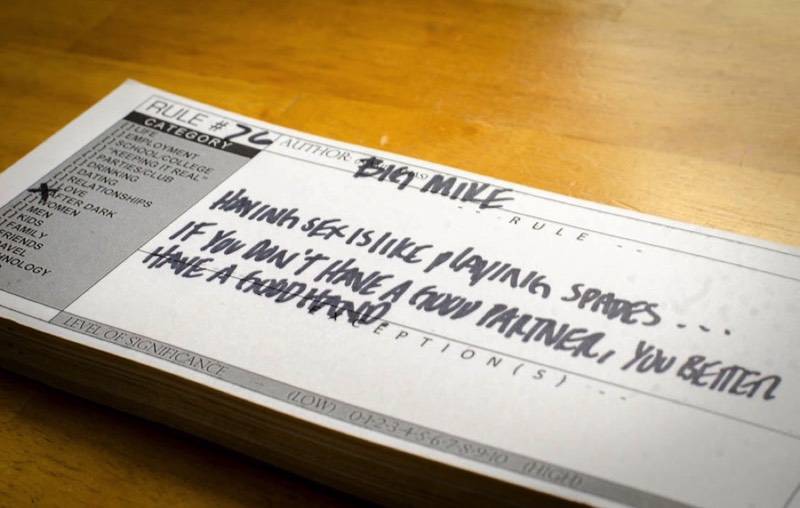 RULE #
CATEGORY
[ ] LIFE
[ ] EMPLOYMENT
[ ] SCHOOL/COLLEGE
[ ] "KEEPING IT REAL"
[ ] PARTIES/CLUB
[ ] DRINKING
[ ] DATING
[ ] RELATIONSHIPS
LOVE
AFTER DARK
[ ] WOMEN
[ ] MEN
[ ] KIDS
FAMILY
FRIENDS
AUTHOR:
BIG MIKE
-- RULE --
HAVING SEX IS LIKE PLAYING SPADES...
IF YOU DON'T HAVE A GOOD PARTNER, YOU BETTER
HAVE A GOOD HAND
EXCEPTION(S) --
LEVEL OF SIGNIFICANCE
(LOW) 0-1-2-3-4-5-6-7-8-9-10 (HIGH)